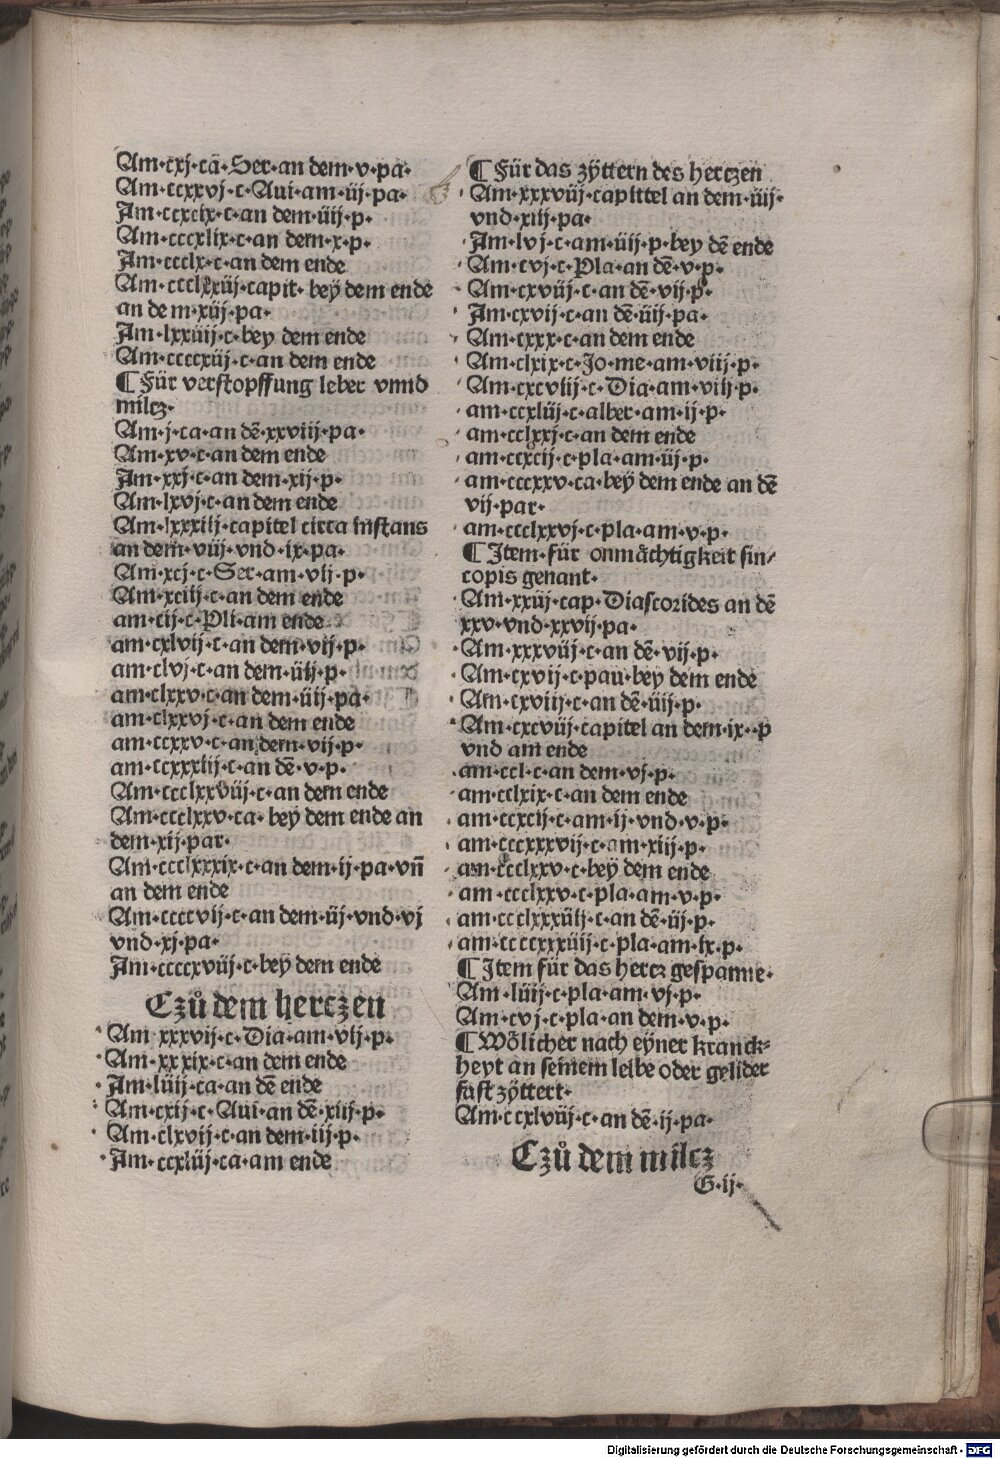 Am·cxj·cā·Ser·an dem·v·pa·
Am·ccxxvj·c·Aui·am·iij·pa·
Im·ccxcix·c·an dem·iiij·p·
Am·cccxlix·c·an dem·x·p·
Im·ccclx·c·an dem ende
Am·ccclxxiij·capit·beÿ dem ende
an de m·xiij·pa·
Im·lxxiiij·c·bey dem ende
Am·ccccxiij·c·an dem ende
¶ Für verstopffung leber vnnd
milcz·
Am·j·ca·an dē·xxviij·pa·
Am·xv·c·an dem ende
Im·xxj·c·an dem·xij·p·
Am·lxvj·c·an dem ende
Am·lxxxiij·capitel circa instans
an dem·viij·vnd·ix·pa·
Am·xcj·c·Ser·am·vij·p·
Am·xciij·c·an dem ende
am·cij·c·Pli·am ende
am·cxlvij·c·an dem·vij·p·
am·clvj·c·an dem·iiij·p·
am·clxxv·c·an dem·iiij·pa·
am·clxxvj·c·an dem ende
am·ccxxv·c·an dem·vij·p·
am·ccxxxiij·c·an dē·v·p·
Am·ccclxxviij·c·an dem ende
Am·ccclxxv·ca·beÿ dem ende an
dem·xij·par·
Am·ccclxxxix·c·an dem·ij·pa·vñ
an dem ende
Am·ccccvij·c·an dem·iij·vnd·vj
vnd·xj·pa·
Im·ccccxviij·c·beÿ dem ende
Czů dem herczen
Am·xxxvij·c·Dia·am·vij·p·
Am·xxxix·c·an dem ende
Im·liiij·ca·an dē ende
Am·cxij·c·Aui·an dē·xiij·p·
Am·clxvij·c·an dem·iij·p·
Im·ccxliij·ca·am ende
¶ Für das zÿttern des herczen
Am·xxxviij·capittel an dem·iiij·
vnd·xiij·pa·
Im·lvj·c·am·iiij·p·bey dē ende
Am·cvj·c·Pla·an dē·v·p·
Am·cxviij·c·an dē·vij·p·
Im·cxvij·c·an dē·iiij·pa·
Am·cxxx·c·an dem ende
Am·clxix·c·Jo·me·am·viij·p·
Am·cxcviij·c·Dia·am·viij·p·
am·ccxliij·c·alber·am·ij·p·
am·cclxxj·c·an dem ende
am·ccxcij·c·pla·am·iij·p·
am·cccxxv·ca·beÿ dem ende an dē
vij·par·
am·ccclxxvj·c·pla·am·v·p·
¶ Item·für onmåchtigkeit sin/
copis genant·
Am·xxiij·cap·Diascorides an dē
xxv·vnd·xxvij·pa·
Am·xxxviij·c·an dē·vij·p·
Am·cxvij·c·pau·bey dem ende
Am·cxviij·c·an dē·iiij·p·
Am·cxcviij·capitel an dem·ix··p
vnd am ende
am·ccl·c·an dem·vj·p·
am·cclxix·c·an dem ende
am·ccxcij·c·am·ij·vnd·v·p·
am·cccxxxvij·c·am·xiij·p·
am·ccclxxv·c·beÿ dem ende
am·ccclxxv·c·pla·am·v·p·
am·ccclxxxiiij·c·an dē·iij·p·
am·ccccxxxiiij·c·pla·am·ix·p·
¶ Item für das hercz gespanne·
Am·liiij·c·pla·am·vj·p·
Am·cvj·c·pla·an dem·v·p·
¶ Wŏlicher nach eÿner kranck=
heyt an seinem leibe oder gelider
fast zÿttert·
Am·ccxlviij·c·an dē·ij·pa·
Czů dem milcz
G·ij·
Digitalisierung gefördert durch die Deutsche Forschungsgemeinschaft - DFG